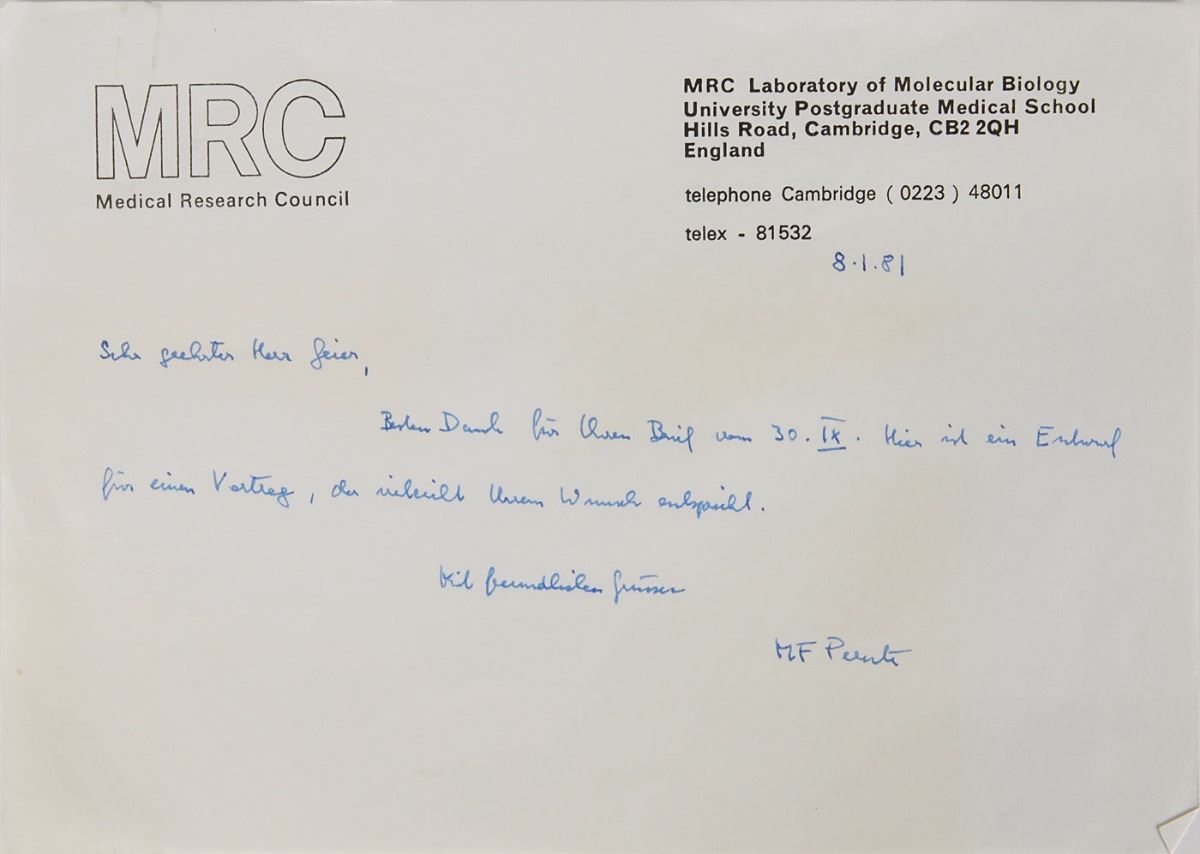 MRC
Medical Research Council
MRC Laboratory of Molecular Biology
University Postgraduate Medical School
Hills Road, Cambridge, CB2 2QH
England
telephone Cambridge ( 0223 ) 48011
telex - 81532
8.1.81
Sehr geehrter Herr Geier,
Besten Dank für Ihren Brief vom 30. IX. Hier ist ein Entwurf
für einen Vortrag, der vielleicht Ihrem Wunsch entspricht.
Mit freundlichen Grüssen
MF Perutz